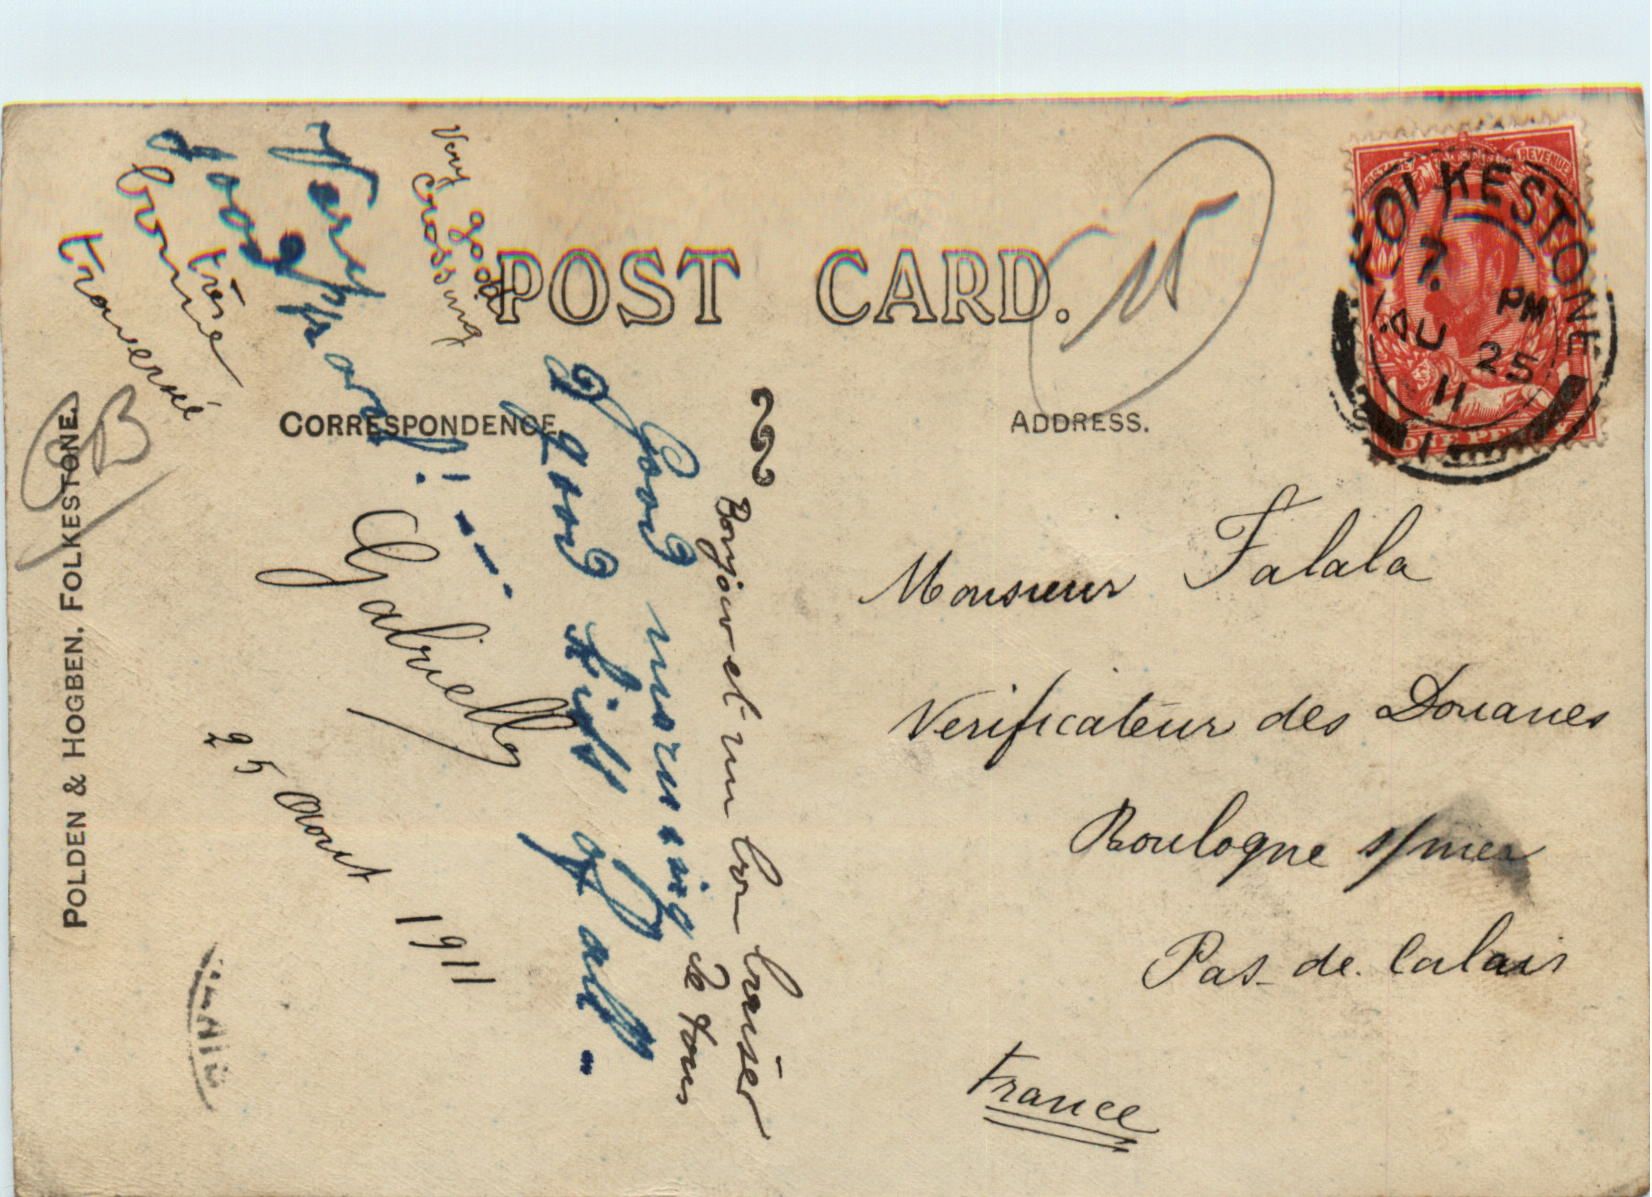 POST CARD.
CORRESPONDENCE.
ADDRESS.
POLDEN & HOGBEN, FOLKESTONE.
FOLKESTONE
7. PM
AU 25
11
ONE PENNY
Monsieur Falala
Verificateur des Douanes
Boulogne s/mer
Pas-de-Calais
France
Bonjour et un bon baiser
de tous
A good morning
A good kiss of all.
Very good
crossing
Very
good
très
bonne
traversée
Gabrielle
25 Aout 1911